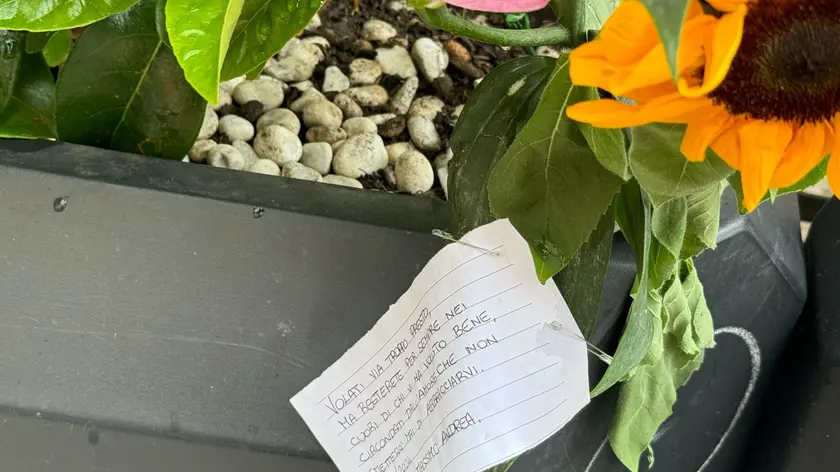 VOLATI VIA TROPPO PRESTO,
MA RESTERETE PER SEMPRE NEI
CUORI DI CHI VI HA VOLUTO BENE,
CIRCONDATI DALL'AMORE CHE NON
SMETTERÀ MAI DI ABBRACCIARVI.
ANDREA.